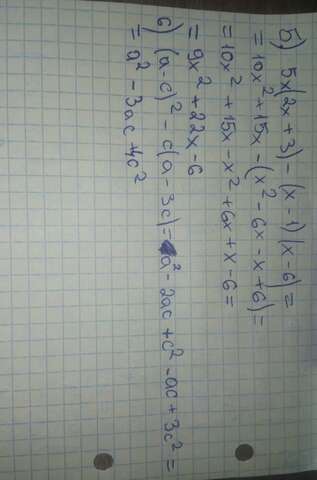 б) 5x(2x+3) - (x-1)(x-6) =
= 10x² + 15x - (x² - 6x - x + 6) =
= 10x² + 15x - x² + 6x + x - 6 =
= 9x² + 22x - 6
c) (a-c)² - c(a-3c) = a² - 2ac + c² - ac + 3c² =
= a² - 3ac + 4c²